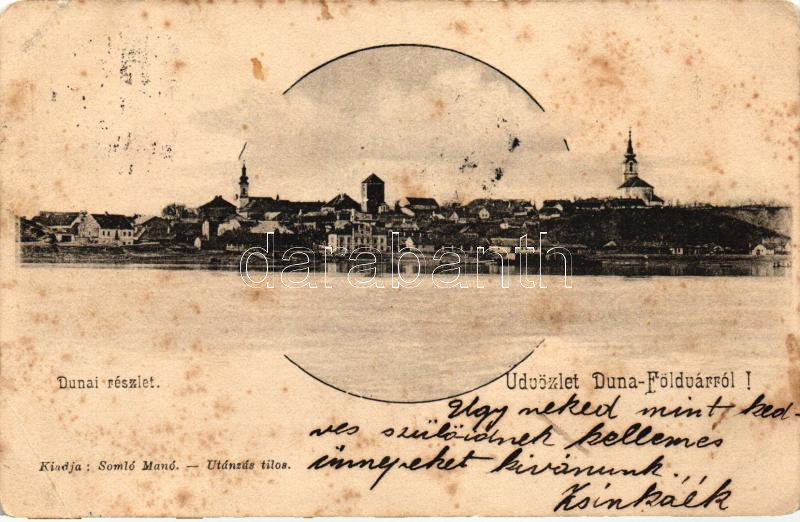 darabanth
Dunai részlet.
Udvözlet Duna-Földvárról !
Ugy neked mint ked-
ves szülőidnek kellemes
ünnepeket kivánunk.
Zsinkáék
Kiadja : Somló Manó. — Utánzás tilos.